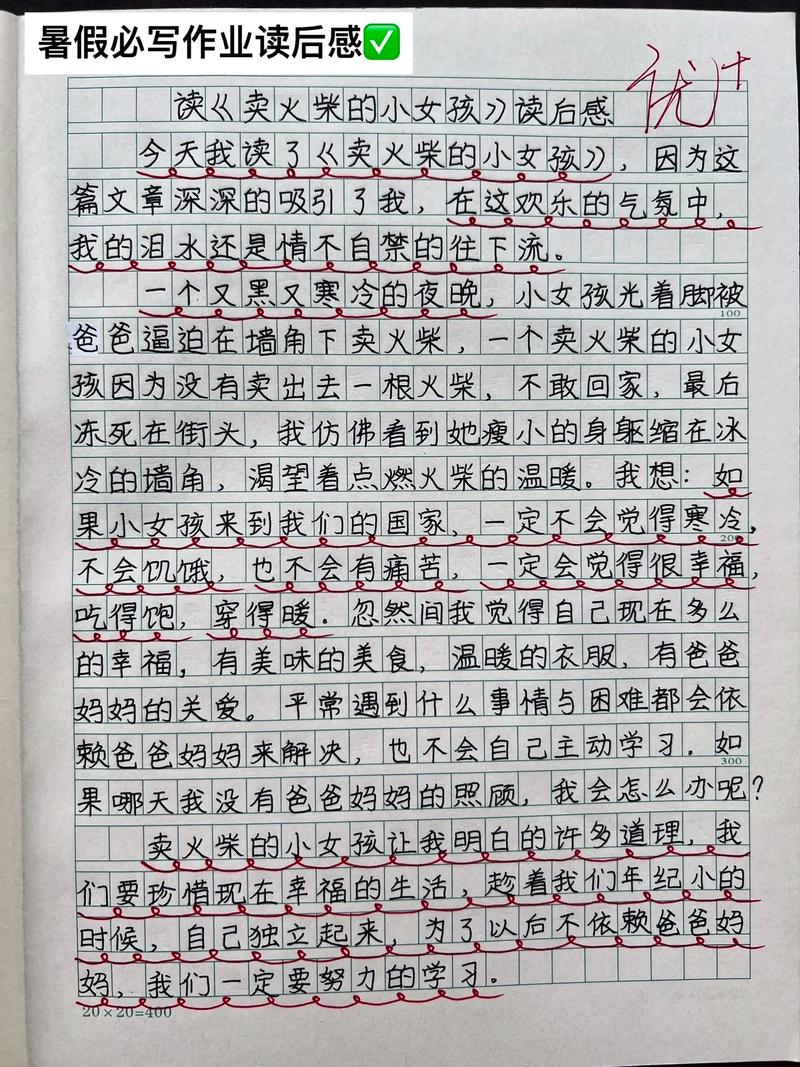 暑假必写作业读后感✅
优+
读《卖火柴的小女孩》读后感
今天我读了《卖火柴的小女孩》，因为这
篇文章深深的吸引了我，在这欢乐的气氛中，
我的泪水还是情不自禁的往下流。
一个又黑又寒冷的夜晚，小女孩光着脚被
100
爸爸逼迫在墙角下卖火柴，一个卖火柴的小女
孩因为没有卖出去一根火柴，不敢回家，最后
冻死在街头，我仿佛看到她瘦小的身躯缩在冰
冷的墙角，渴望着点燃火柴的温暖。我想：如
果小女孩来到我们的国家，一定不会觉得寒冷，
200
不会饥饿，也不会有痛苦，一定会觉得很幸福，
吃得饱，穿得暖。忽然间我觉得自己现在多么
的幸福，有美味的美食，温暖的衣服，有爸爸
妈妈的关爱。平常遇到什么事情与困难都会依
赖爸爸妈妈来解决，也不会自己主动学习。如
300
果哪天我没有爸爸妈妈的照顾，我会怎么办呢？
卖火柴的小女孩让我明白的许多道理，我
们要珍惜现在幸福的生活，趁着我们年纪小的
时候，自己独立起来，为了以后不依赖爸爸妈
妈，我们一定要努力的学习。
20×20=400